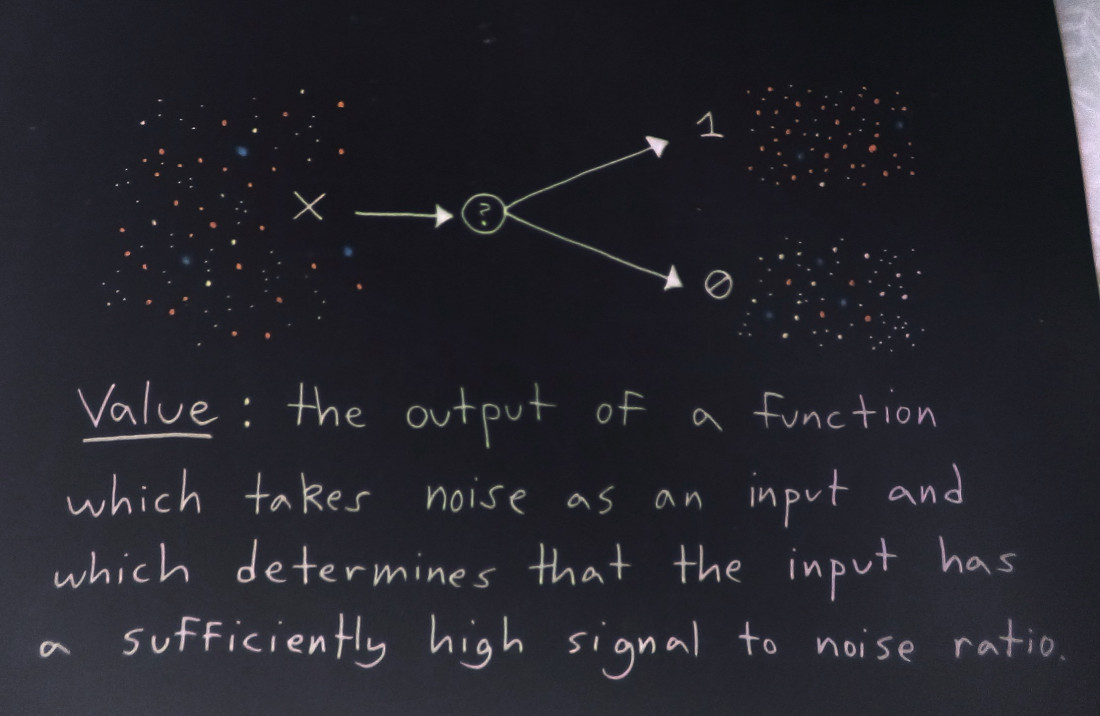 X ? 1
0
Value: the output of a function
which takes noise as an input and
which determines that the input has
a sufficiently high signal to noise ratio.